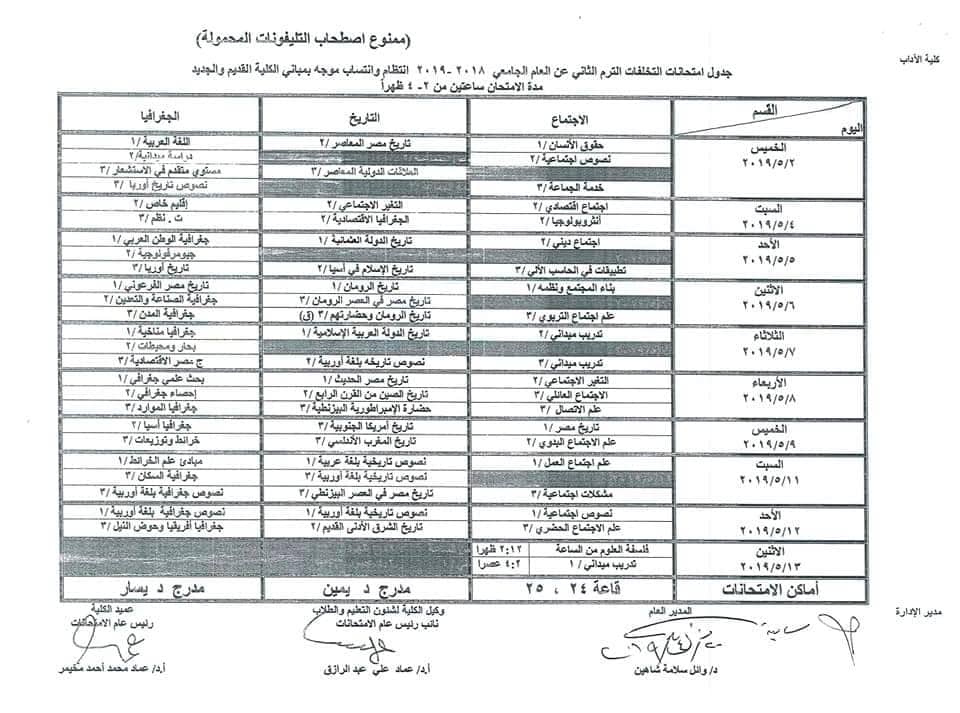 (ممنوع اصطحاب التليفونات المحمولة)
كلية الأداب
جدول امتحانات التخلفات الترم الثاني عن العام الجامعي ٢٠١٨ -٢٠١٩ انتظام وانتساب موجه بمباني الكلية القديم والجديد
مدة الامتحان ساعتين من ٢- ٤ ظهراً
القسم
اليوم
الاجتماع
التاريخ
الجغرافيا
الخميس
٢٠١٩/٥/٢
حقوق الأنسان /١
نصوص اجتماعية /٢
خدمة الجماعة /٣
تاريخ مصر المعاصر /٢
العلاقات الدولية المعاصر /٣
اللغة العربية /١
دراسة ميدانية/٢
مستوي متقدم في الاستشعار /٣
نصوص تاريخ أوربا /٣
السبت
٢٠١٩/٥/٤
اجتماع اقتصادي /٢
أنثروبولوجيا /٢
التغير الاجتماعي /٢
الجغرافيا الاقتصادية /٢
إقليم خاص /٢
ت . نظم /٣
الأحد
٢٠١٩/٥/٥
اجتماع ديني /٢
تطبيقات في الحاسب الألي /٣
تاريخ الدولة العثمانية /١
تاريخ الإسلام في أسيا /٢
جغرافية الوطن العربي /١
جيومرفولوجية /٢
تاريخ أوربا /٣
الاثنين
٢٠١٩/٥/٦
بناء المجتمع ونظمه /١
علم اجتماع التربوي /٣
تاريخ الرومان /١
تاريخ مصر في العصر الرومان /٣
تاريخ الرومان وحضارتهم /٣ (ق)
تاريخ مصر الفرعوني /١
جغرافية الصناعة والتعدين /٢
جغرافية المدن /٣
الثلاثاء
٢٠١٩/٥/٧
تدريب ميداني /٢
تدريب ميداني /٣
تاريخ الدولة العربية الإسلامية /١
نصوص تاريخه بلغة أوربية /٢
جغرافيا مناخية /١
بحار ومحيطات /٢
ج مصر الاقتصادية /٣
الأربعاء
٢٠١٩/٥/٨
التغير الاجتماعي /٢
الاجتماع العائلي /٣
علم الاتصال /٣
تاريخ مصر الحديث /١
تاريخ الصين من القرن الرابع /٢
حضارة الإمبراطورية البيزنطية /٣
بحث علمي جغرافي /١
إحصاء جغرافي /٢
جغرافيا الموارد /٣
الخميس
٢٠١٩/٥/٩
تاريخ مصر /١
علم الاجتماع البدوي /٢
تاريخ أمريكا الجنوبية /٣
تاريخ المغرب الأندلسي /٣
جغرافيا أسيا /٢
خرائط وتوزيعات /٣
السبت
٢٠١٩/٥/١١
علم اجتماع العمل /١
مشكلات اجتماعية /٣
نصوص تاريخية بلغة عربية /١
نصوص تاريخية بلغة أوربية /٣
تاريخ مصر في العصر البيزنطي /٣
مبادئ علم الخرائط /١
جغرافية السكان /٣
نصوص جغرافية بلغة أوربية /٣
الأحد
٢٠١٩/٥/١٢
نصوص اجتماعية /١
علم الاجتماع الحضري /٣
نصوص تاريخية بلغة أوربية /١
تاريخ الشرق الأدنى القديم /٢
نصوص جغرافية بلغة أوربية /١
جغرافيا أفريقيا وحوض النيل /٣
الاثنين
٢٠١٩/٥/١٣
فلسفة العلوم من الساعة ٢:١٢ ظهرا
تدريب ميداني / ١ ٤:٢ عصرا
أماكن الامتحانات
قاعة ٢٤ ، ٢٥
مدرج د يمين
مدرج د يسار
مدير الإدارة
المدير العام
د/ وائل سلامة شاهين
وكيل الكلية لشئون التعليم والطلاب
نائب رئيس عام الامتحانات
أ.د/ عماد علي عبد الرازق
عميد الكلية
رئيس عام الامتحانات
أ.د/ عماد محمد أحمد مخيمر